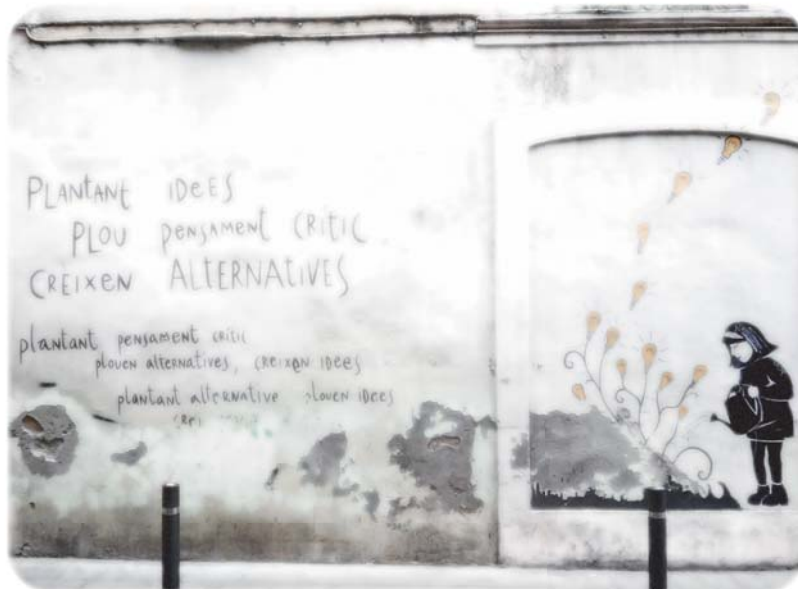 PLANTANT IDEES
PLOU pensament CRITIC
CREIXEN ALTERNATIVES
plantant pensament critic
plouen alternatives, CREIXEN IDEES
plantant alternative plouen IDEES